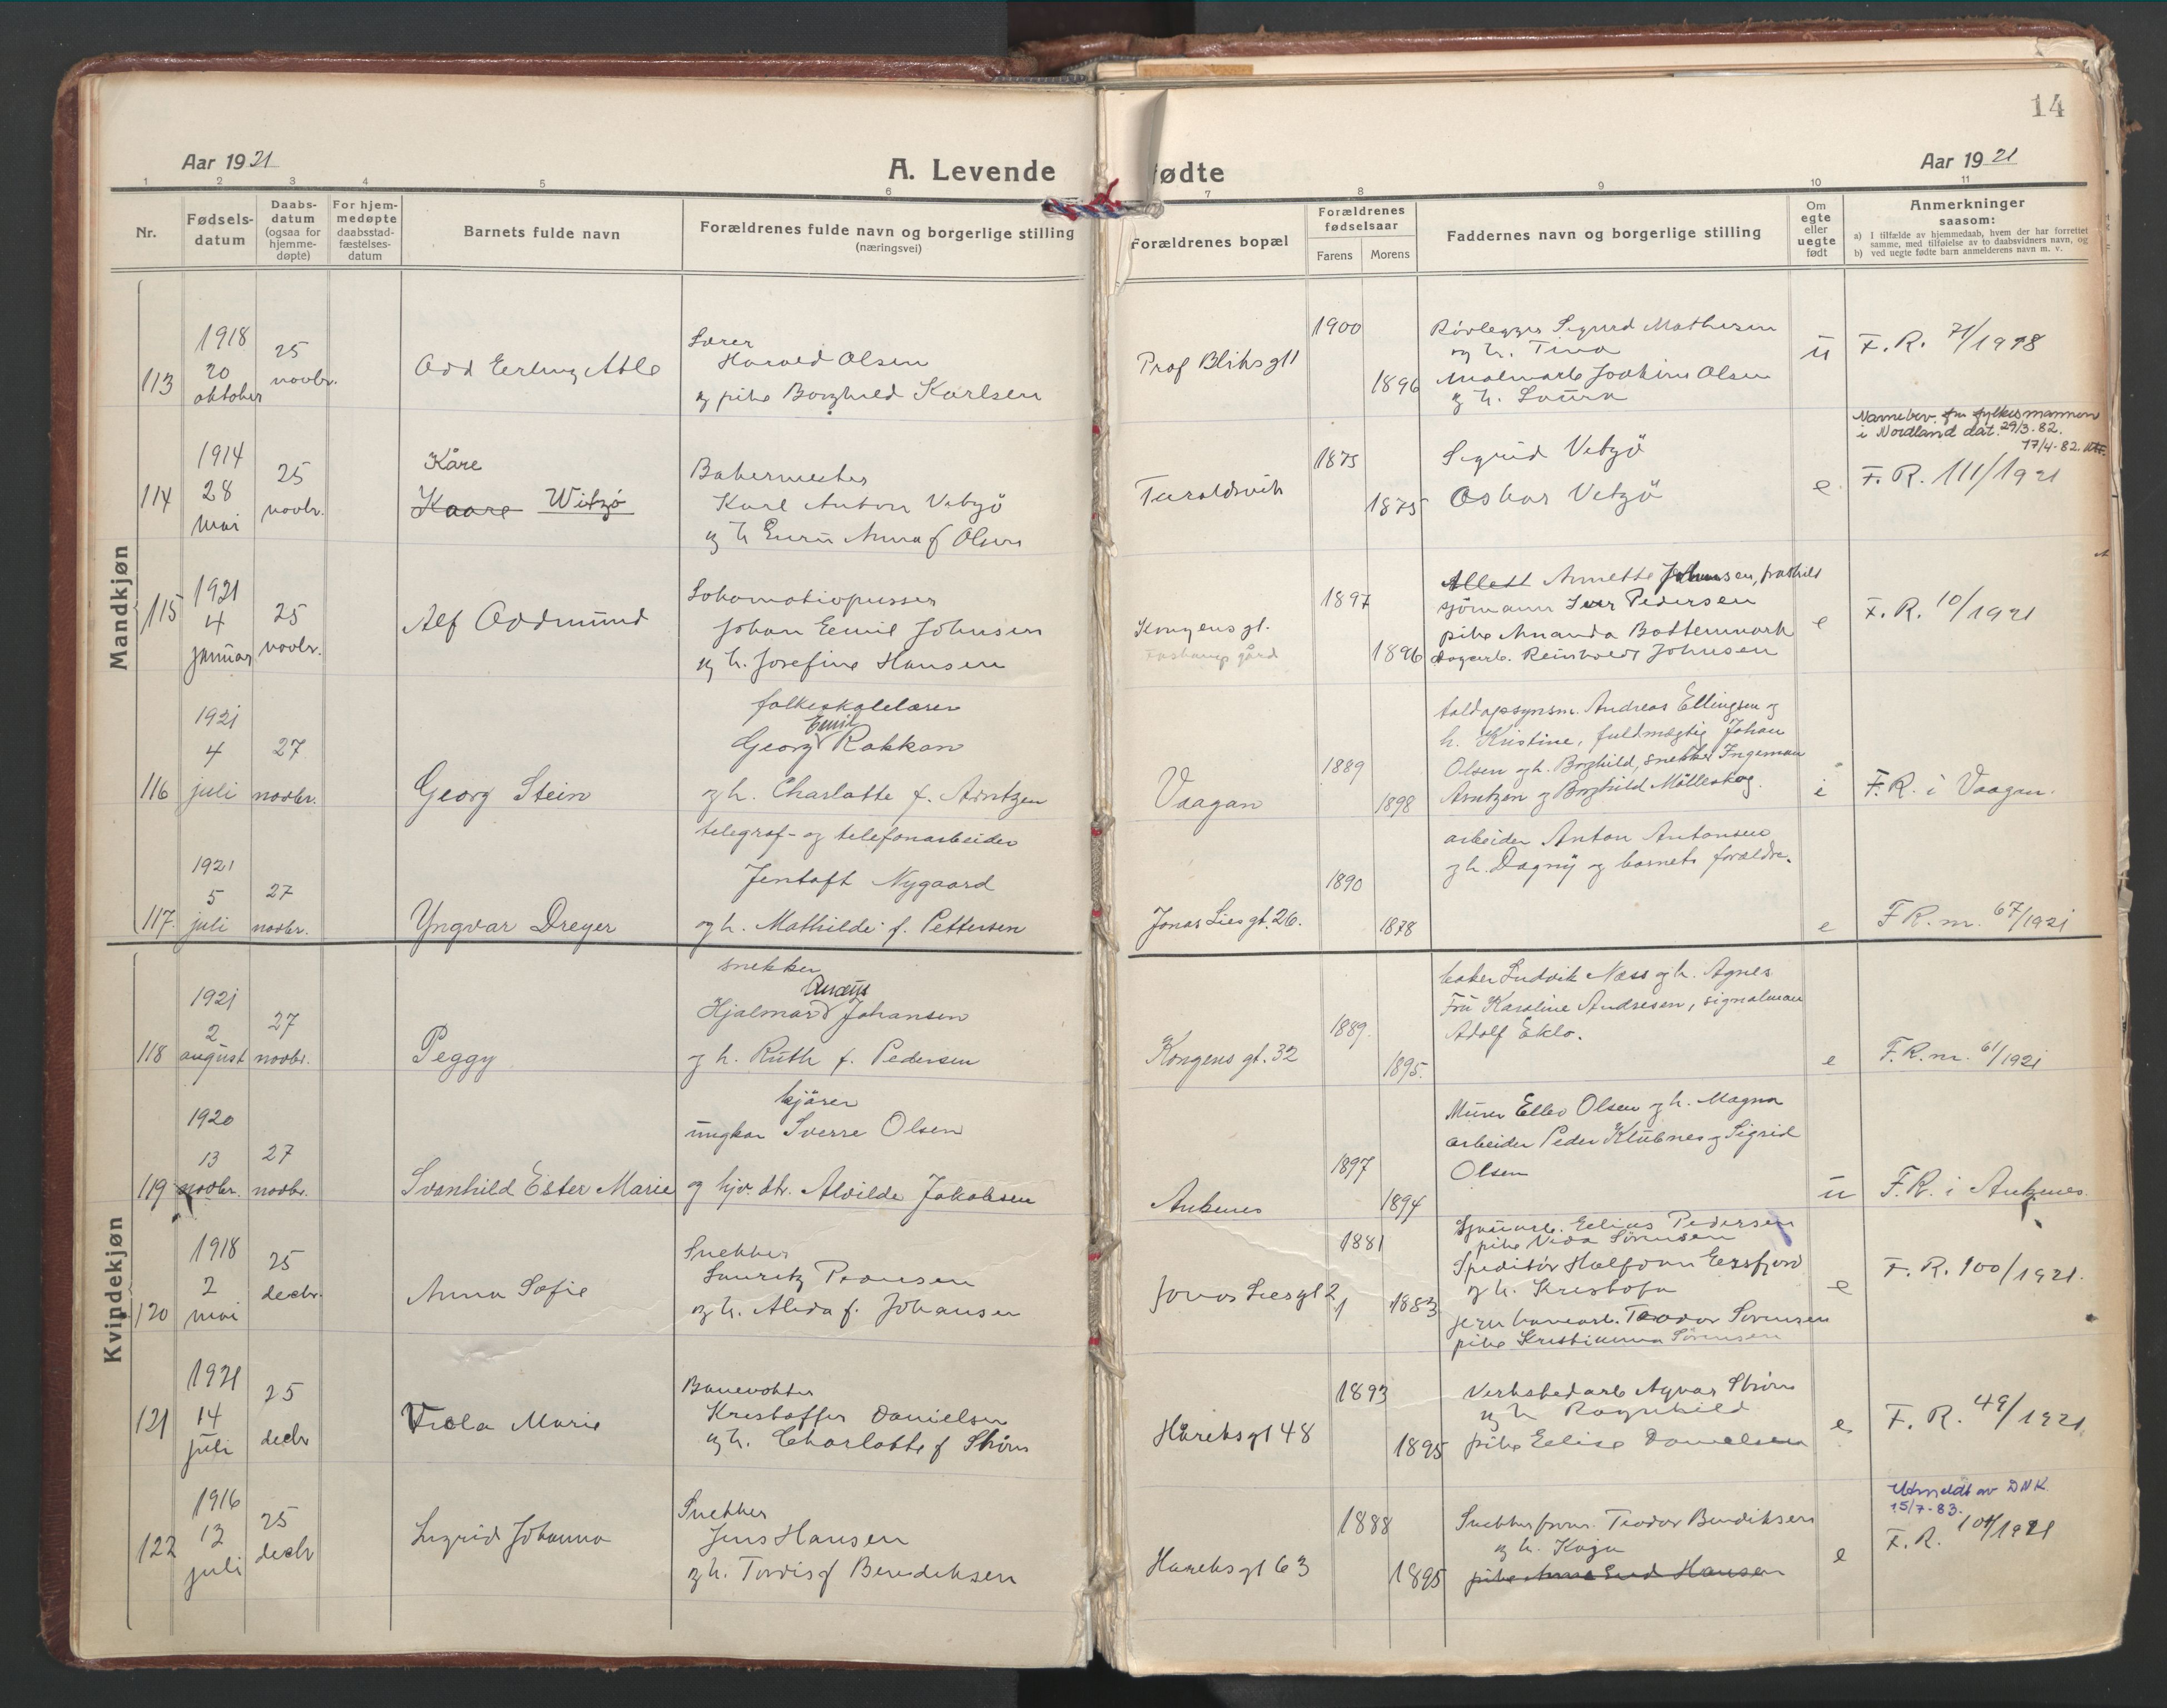 14
Aar 1921
A. Levende fødte
Aar 1921
1 2 3 4 5 6 7 8 9 10 11
Nr.
Fødsels-
datum
Daabs-
datum
(ogsaa for
hjemme-
døpte)
For hjem-
medøpte
daabsstad-
fæstelses-
datum
Barnets fulde navn
Forældrenes fulde navn og borgerlige stilling
(næringsvei)
Forældrenes bopæl
Forældrenes
fødselsaar
Farens Morens
Faddernes navn og borgerlige stilling
Om
egte
eller
uegte
født
Anmerkninger
saasom:
a) I tilfælde av hjemmedaab, hvem der har forrettet
samme, med tilføielse av to daabsvidners navn, og
b) ved uegte fødte barn anmelderens navn m. v.
Mandkjøn
113
1918
20
oktober
25
novbr.
Odd Erling Atle
Harald Olsen
og pike Borghild Karlsen
Prof Blihsgt 1
1900
1896
Rørlegger Sigurd Mathisen
og h. Tina
Malmarb Joakim Olsen
og h. Laura
ü
F. R. 71/1918
114
1914
28
mai
25
novbr.
Kåre
Kaare Witzø
Bakermester
Karl Anton Vetzö
og h Enru Anna f Olsen
Taraldsvik
1875
1875
Sigrid Vetzö
Oskar Vetzö
e.
Navnebev. fra fylkesmannen
i Nordland dat. 29/3-82.
17/4-82.
F. R. 111/1921
115
1921
4
januar
25
novbr.
Alf Oddmund
Lokomotivpusser
Johan Emil Johnsen
og h. Josefine Hansen
Kongensgt.
gård
1897
1896
Annette Johnsen,
sjömann Iver Pedersen
pike Amanda Bottenmark
Reinholdt Johnsen
e
F. R. 10/1921
116
1921
4
juli
27
novbr.
Georg Stein
folkeskolelærer
Emil
Georg Rakkan
og h. Charlotte f. Arntzen
Vaagan
1889
1898
toldopsynsm. Andreas Ellingsen og
h. Kristine, fuldmægtig Johan
Olsen og h. Borghild, snekker Ingeman
Arntzen og Borghild Mölleskog.
i
F. R. i Vaagan.
117.
1921
5
juli
27
novbr.
Yngvar Dreyer
telegraf- og telefonarbeider
Jentoft Nygaard
og h. Mathilde f. Pettersen
Jonas Liesgt. 26.
1890
1878
arbeider Anton Antonsen
og h. Dagny og barnets forældre.
e
F R. nr. 67/1921
Kvindekjøn
118
1921
2
august
27
novbr.
Peggy
snekker
Hjalmar Johansen
og h. Ruth f. Pedersen
Kongens gt. 32
1889.
1895.
baker Ludvik Næss og h. Agnes
Fru Karoline Andresen, signalman
Adolf Eklo.
e
F. R. nr. 61/1921
119
1920
13
novbr.
27
novbr.
Svanhild Ester Marie
kjörer
ungkar Sverre Olsen
og hjv. dtr. Alvilde Jakobsen
Ankenes
1897
1894
Murer Ellev Olsen og h. Magna
arbeider Peder Klubnes og Sigrid
Olsen
ü
F. R. i Ankenes.
120
1918
2
mai
25
decbr.
Anna Sofie
Snekker
Lauritz
og h. Alida f. Johansen
Jonas Liesgt 21
1881
1883
Sjauarb. Elias Pedersen
pike Sörensen
Speditör Halfdan Eessfjord
og h. Kristofa
jernbanearb. Teodor Sörensen
pike Kristianna Sörensen
e
F. R. 100/1921.
121
1921
14
juli
25
decbr
Viola Marie
Banevokter
Kristoffer Danielsen
og h. Charlotte f Ström
Håreksgt 48
1893
1895
Verkstedarb Agvar Ström
og h Ragnhild
pike Elise Danielsen
e
F. R. 49/1921.
122
1916
13
juli
25
decbr
Ingrid Johanna
Snekker
Jens Hansen
og h. Tordis f Bendiksen
Hareksgt 63
1888
1895
Teodor Bendiksen
og h. Kaja
pike Anna Hansen
e
Utmeldt av DNK
15/7-83.
F. R. 104/1921